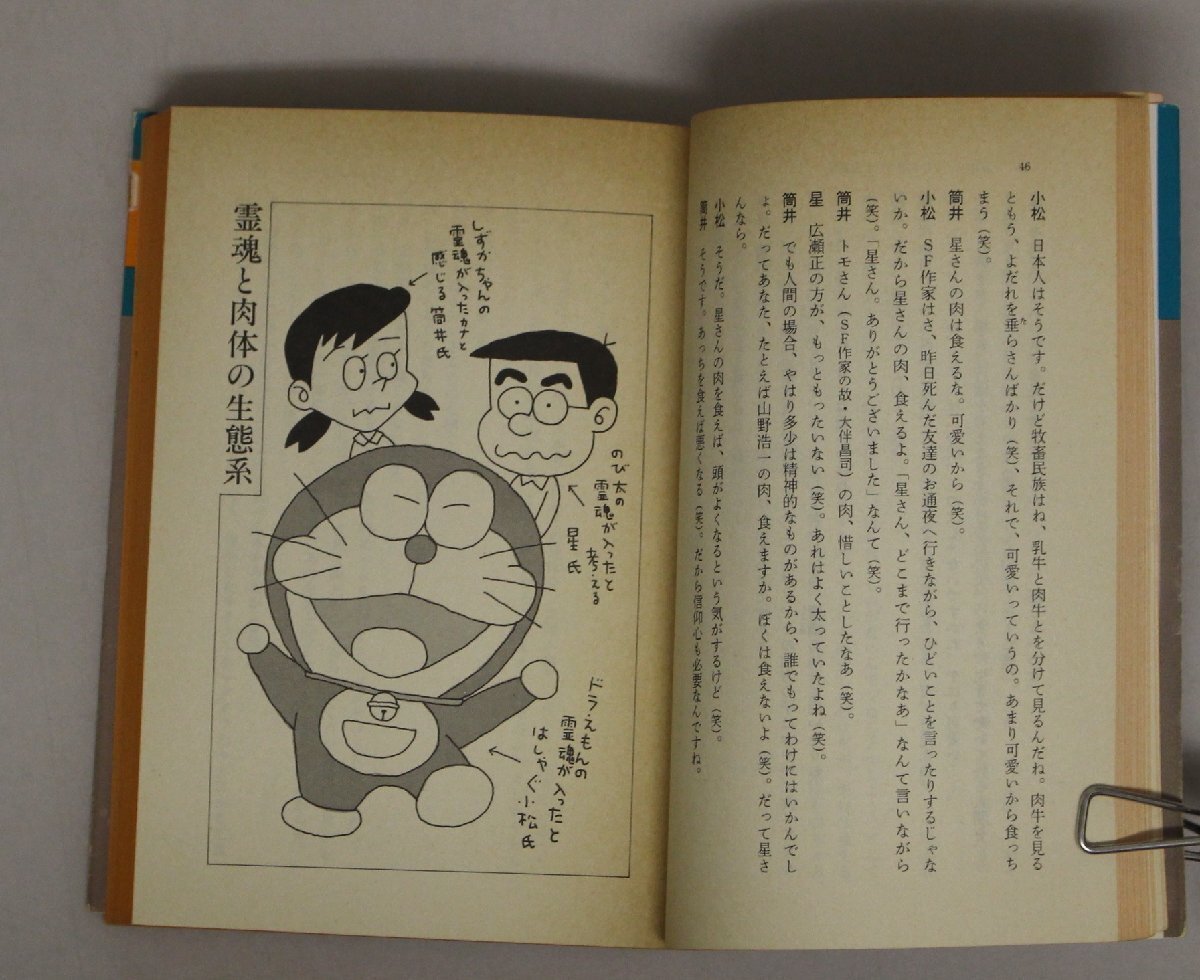 46
小松　日本人はそうです。だけど牧畜民族はね、乳牛と肉牛とを分けて見るんだね。肉牛を見る
ともう、よだれを垂らさんばかり（笑）、それで、可愛いっていうの。あまり可愛いから食っち
まう（笑）。
筒井　星さんの肉は食えるな。可愛いから（笑）。
小松　ＳＦ作家はさ、昨日死んだ友達のお通夜へ行きながら、ひどいことを言ったりするじゃな
いか。だから星さんの肉、食えるよ。「星さん、どこまで行ったかなあ」なんて言いながら
（笑）。「星さん。ありがとうございました」なんて（笑）。
筒井　トモさん（ＳＦ作家の故・大伴昌司）の肉、惜しいことしたなあ（笑）。
星　広瀬正の方が、もっともったいない（笑）。あれはよく太っていたよね（笑）。
筒井　でも人間の場合、やはり多少は精神的なものがあるから、誰でもってわけにはいかんでし
ょ。だってあなた、たとえば山野浩一の肉、食えますか。ぼくは食えないよ（笑）。だって星さ
んなら。
小松　そうだ。星さんの肉を食えば、頭がよくなるという気がするけど（笑）。
筒井　そうです。あっちを食えば悪くなる（笑）。だから信仰心も必要なんですね。
霊魂と肉体の生態系
しずかちゃんの
霊魂が入ったカナと
感じる筒井氏
のび太の
霊魂が入ったと
考える
星氏
ドラえもんの
霊魂が
入ったと
はしゃぐ小松氏